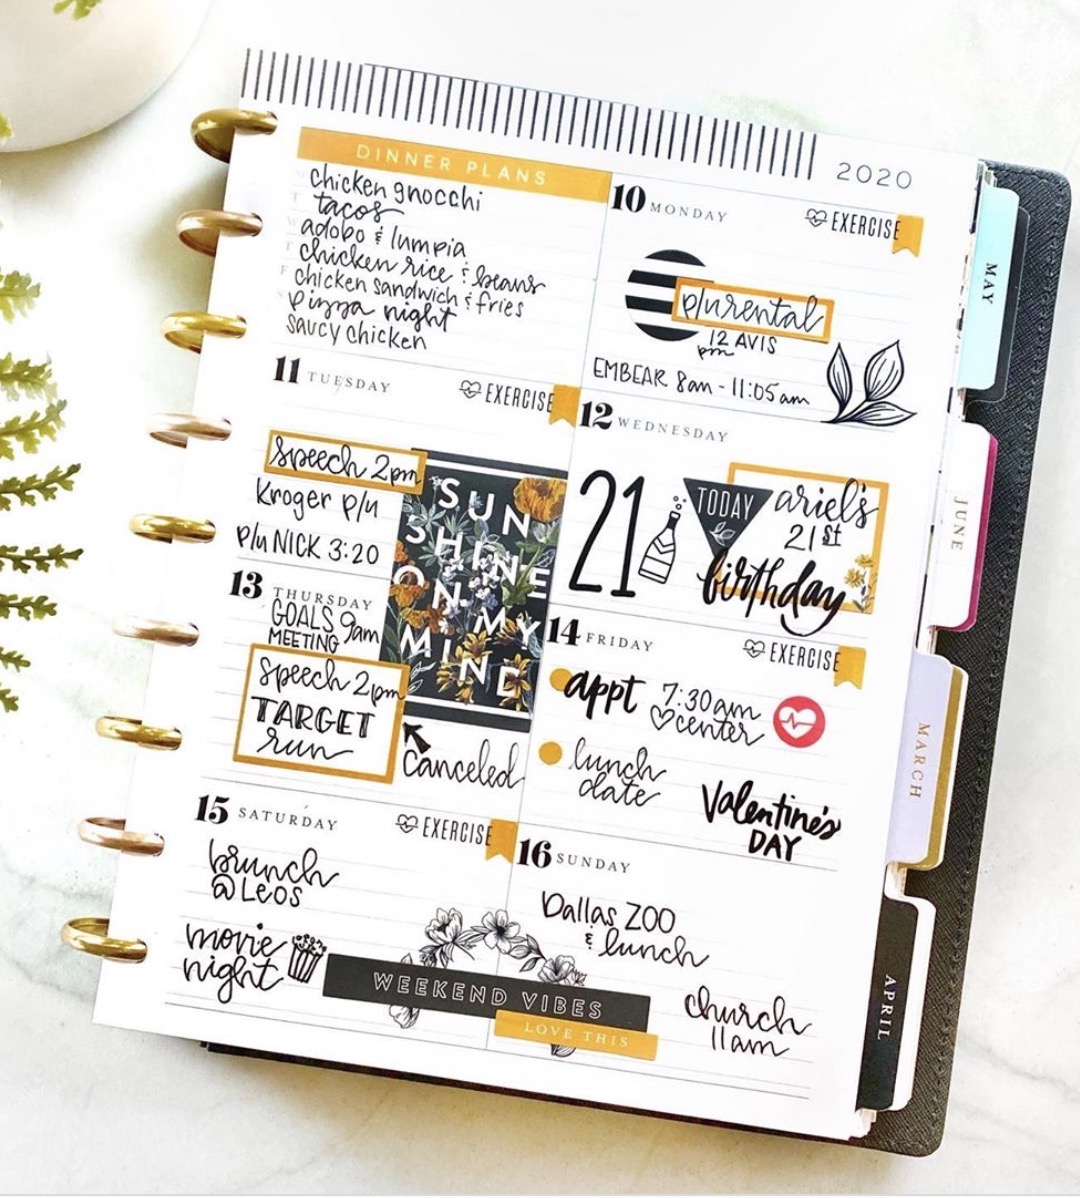 2020
DINNER PLANS
chicken gnocchi
tacos
adobo & lumpia
chicken rice & beans
chicken sandwich & fries
pizza night
saucy chicken
10 MONDAY
EXERCISE
p/u rental
12 AVIS
pm
EMBEAR 8am - 11:05am
11 TUESDAY
EXERCISE
speech 2pm
Kroger p/u
p/u NICK 3:20
SUN
SHINE
ON MY
MIND
12 WEDNESDAY
21
TODAY
ariel's
21st
birthday
13 THURSDAY
GOALS 9am
MEETING
speech 2pm
TARGET
run
Canceled
14 FRIDAY
EXERCISE
appt 7:30am
center
lunch
date
Valentine's
DAY
15 SATURDAY
EXERCISE
brunch
@ Leos
movie
night
16 SUNDAY
Dallas ZOO
& lunch
church
11am
WEEKEND VIBES
LOVE THIS
MAY
JUNE
MARCH
APRIL